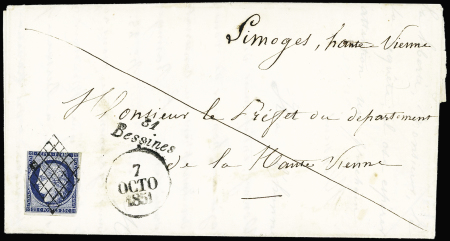 Limoges, haute Vienne
Monsieur le Préfet du département
de la Haute Vienne
81
Bessines
7
OCTO
1851